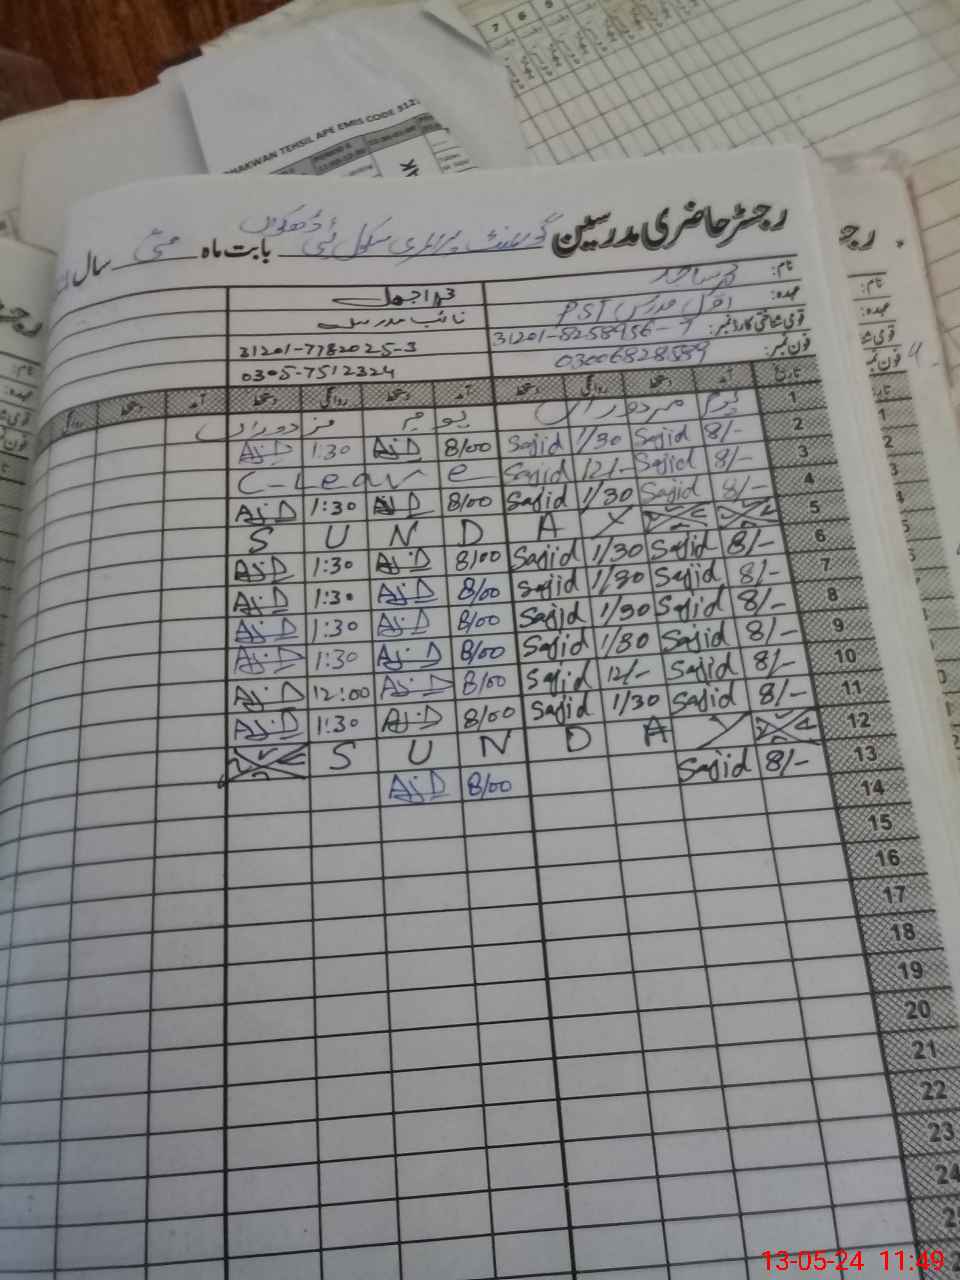 7 6 5
HAKWAN TEHSIL APE EMIS CODE 312
رجسٹر حاضری مدرسین گورنمنٹ پرائمری سکول بابت ماہ مئی سال
نام: محمد ساجد محمد اجمل
عہدہ: PST نائب مدرس
قومی شناختی کارڈ نمبر: 31201-8258956-7 31201-7782025-3
فون نمبر: 03006828589 0305-7512324
تاریخ آمد دستخط روانگی دستخط آمد دستخط روانگی دستخط آمد دستخط روانگی
1 یوم مزدوراں یوم مزدوراں
2 8/- Sajid 1/30 Sajid 8/00 AjD 1:30 AjD
3 8/- Sajid 12/- Sajid C-Leave
4 8/- Sajid 1/30 Sajid 8/00 AjD 1:30 AjD
5 SUNDAY
6 8/- Sajid 1/30 Sajid 8/00 AjD 1:30 AjD
7 8/- Sajid 1/30 Sajid 8/00 AjD 1:30 AjD
8 8/- Sajid 1/30 Sajid 8/00 AjD 1:30 AjD
9 8/- Sajid 1/30 Sajid 8/00 AjD 1:30 AjD
10 8/- Sajid 12/- Sajid 8/00 AjD 12:00 AjD
11 8/- Sajid 1/30 Sajid 8/00 AjD 1:30 AjD
12 SUNDAY
13 8/- Sajid 8/00 AjD
14
15
16
17
18
19
20
21
22
23
24
13-05-24 11:49